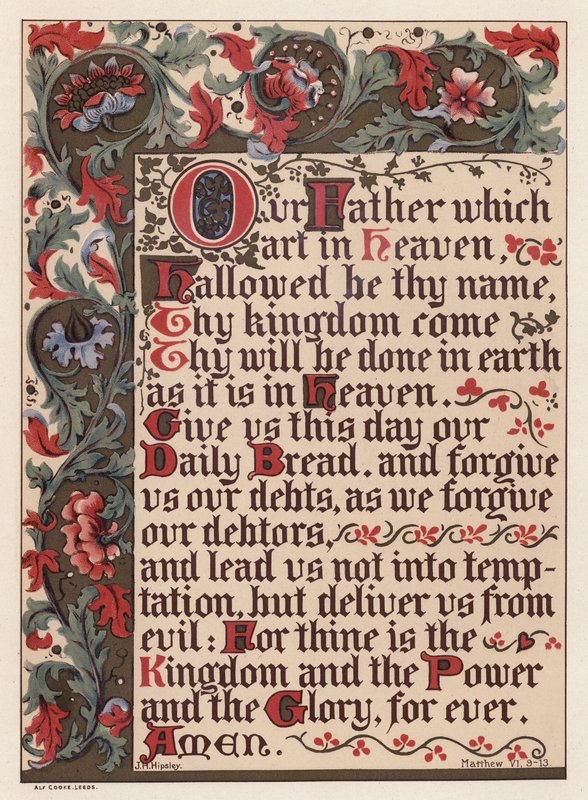 Our Father which
art in Heaven,
Hallowed be thy name,
Thy kingdom come
Thy will be done in earth
as it is in Heaven.
Give us this day our
Daily Bread. and forgive
us our debts, as we forgive
our debtors,
and lead us not into temp-
tation, but deliver us from
evil: For thine is the
Kingdom and the Power
and the Glory, for ever.
AMEN.
J.H.Hipsley.
Matthew VI, 9-13.
ALF COOKE. LEEDS.